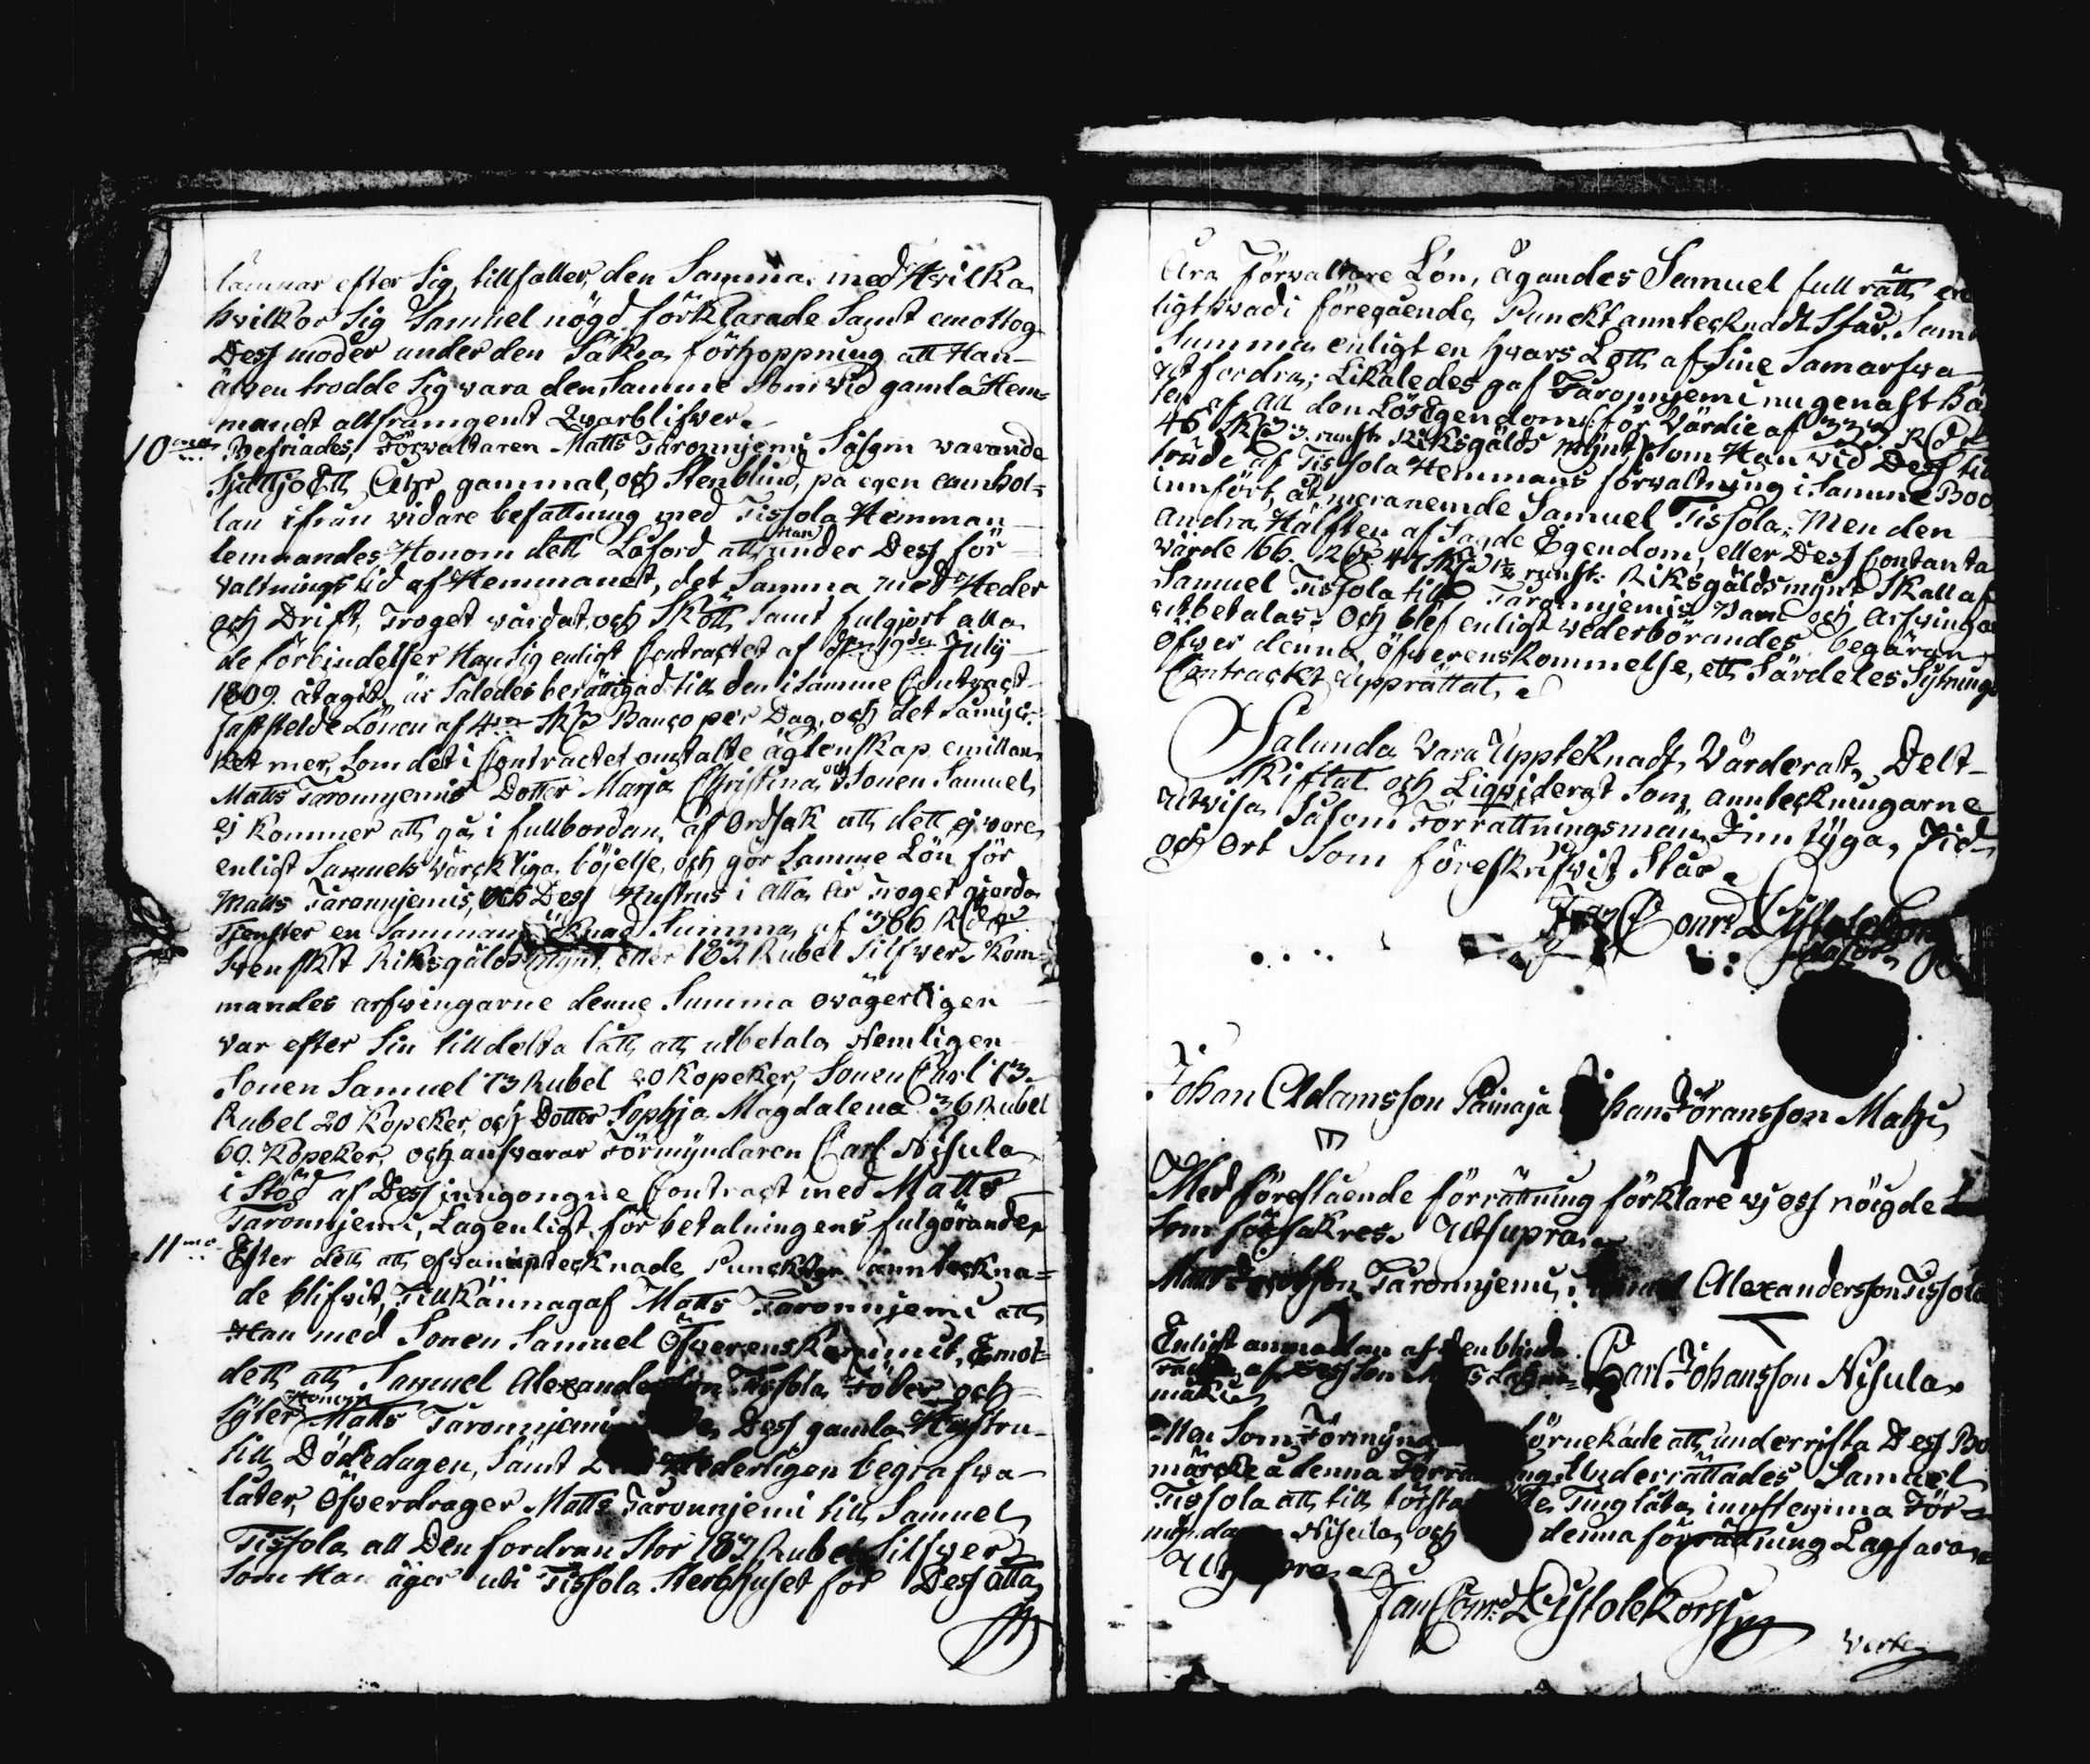 lämnar efter Sig, tillfaller, den Samma. med Hvilka
hvilkor Sig Samuel nögd förklarade Samt emottog
Dess moder under den Säkra förhoppning att Han
äfven trodde Sig vara den Samme Som vid gamla Hem=
manet altframgent Qvarblifver.
10mo Befriades, Förvaltaren Matts Taronnjemi Såsom varande
Sjuttjo Ett Åhr gammal, och Stenblind, på egen anhol=
lan ifrån vidare befattning med Tissola Hemman
lemnandes Honom dett Låford att Han under Dess för=
valtnings tid af Hemmanet, det Samma med Heder
och Drift, Troget vårdat och Skött Samt fulgjort alla
de förbindelser Han Sig enligt Contractet af den 19de July
1809. åtagit, är Saledes berättigad till den i Samme Contract
faststelde Lönen af 4ra Sk/a Banco per Dag, och det Så myc=
ket mer, Som det i Contractet omtalte ägtenskap emillan
Matts Taronnjemis Dotter Marja Christina och Sonen Samuel
ej kommer att gå i fullbordan, af Ordsak att dett ej vore
enligt Samuels värckliga böjelse, och gör Samme Lön för
Matts Taronnjemis, och Dess Hustrus i åtta år Troget gjorda
Tjenster en Sammanräknad Summa af 366 R
Svenskt Riksgälds Mynt eller 183 Rubel Silfver. Kom=
mandes arfvingarne denne Summa ovägerligen
var efter Sin tilldelta lått att utbetala Nemligen
Sonen Samuel 73 Rubel 20 kopeker, Sonen Carl 73
Rubel 20 Kopeker, och Dotter Sophja Magdalena 36 Rubel
60. Kopeker, och ansvarar Förmyndaren Carl Nisula
i Stöd af Dess inngongne Contract med Matts
Taronnjemi, Lagenligt för betalningens fulgörande
11mo Efter dett att ofvanuptecknade Punckter anteckna=
de blifvit, Tillkännagaf Matts Taronnjemi att
Han med Sonen Samuel Öfverenskommit, Emot
dett att Samuel Alexandersson Tissola Föder och
Syter Honom Matts Taronnjemi Dess gamla Hustru
till Dödedagen, Samt Hederligen begrafva
låter, Öfverdrager Matts Taronnjemi till Samuel
Tissola all Den fordran Stor 183 Rubel Silfver
Som Han äger uti Tissola Sterbhuset för Dess åtta
Åra Förvaltare Lön, ägandes Samuel full rätt en
ligt hvad i föregående Punckt anntecknadt Står. Sam
Summa enligt en hvars Lott af Sine Samarfva
ut fordra; Likaledes gaf Taronnjemi nu genast hä
ten af all den Lös Egendom (för Värdie af 333 R
46 Sk 3 runst: Riksgälds Mynt) Som Han vid Dess til
träde af Tissola Hemmans förvaltning i Samme Bo
innfört, åt meranemde Samuel Tissola; Men den
andra Hälften af Sagde Egendom, eller Dess Contanta
värde 166. R 47 Sk 1 1/2 runst: Riksgälds mynt Skall af
Samuel Tissola till Taronnjemis Barn och Arfvingar
utbetalas. Och blef enligt vederbörandes begäran
öfver denna öfverenskommelse, ett Särdeles Sytnings
Contrackt Upprättat.
Salunda vara Upptecknadt, Värderat, Delt
Skiftat och Liqviderat Som annteckningarne
utvisa Såsom Förrättningsmän Inntyga, Tid
och Ort Som föreskrifvit Står.
Jan Conr: Pistolekors
Johan Adamsson Painaja Johan Jöransson Matzi
Med föreståendе förrättning förklare vj oss nöigde
Som försäkres. Ut supra.
Matts Taronnjemi, Samuel Alexandersson Tissola
Enligt anmodan af den blinde
af Dess Son Matts
Carl Johansson Nisula
Men Som Förmyndaren förnekade att underrita Dess Bo
märcke å denna Förrättning Underrättades Samuel
Tissola att till första Ting låta innstemma För=
myndaren Nisula, och denna förrättning Lagfara
Ut supra.
Jan Conr: Pistolekors
verte